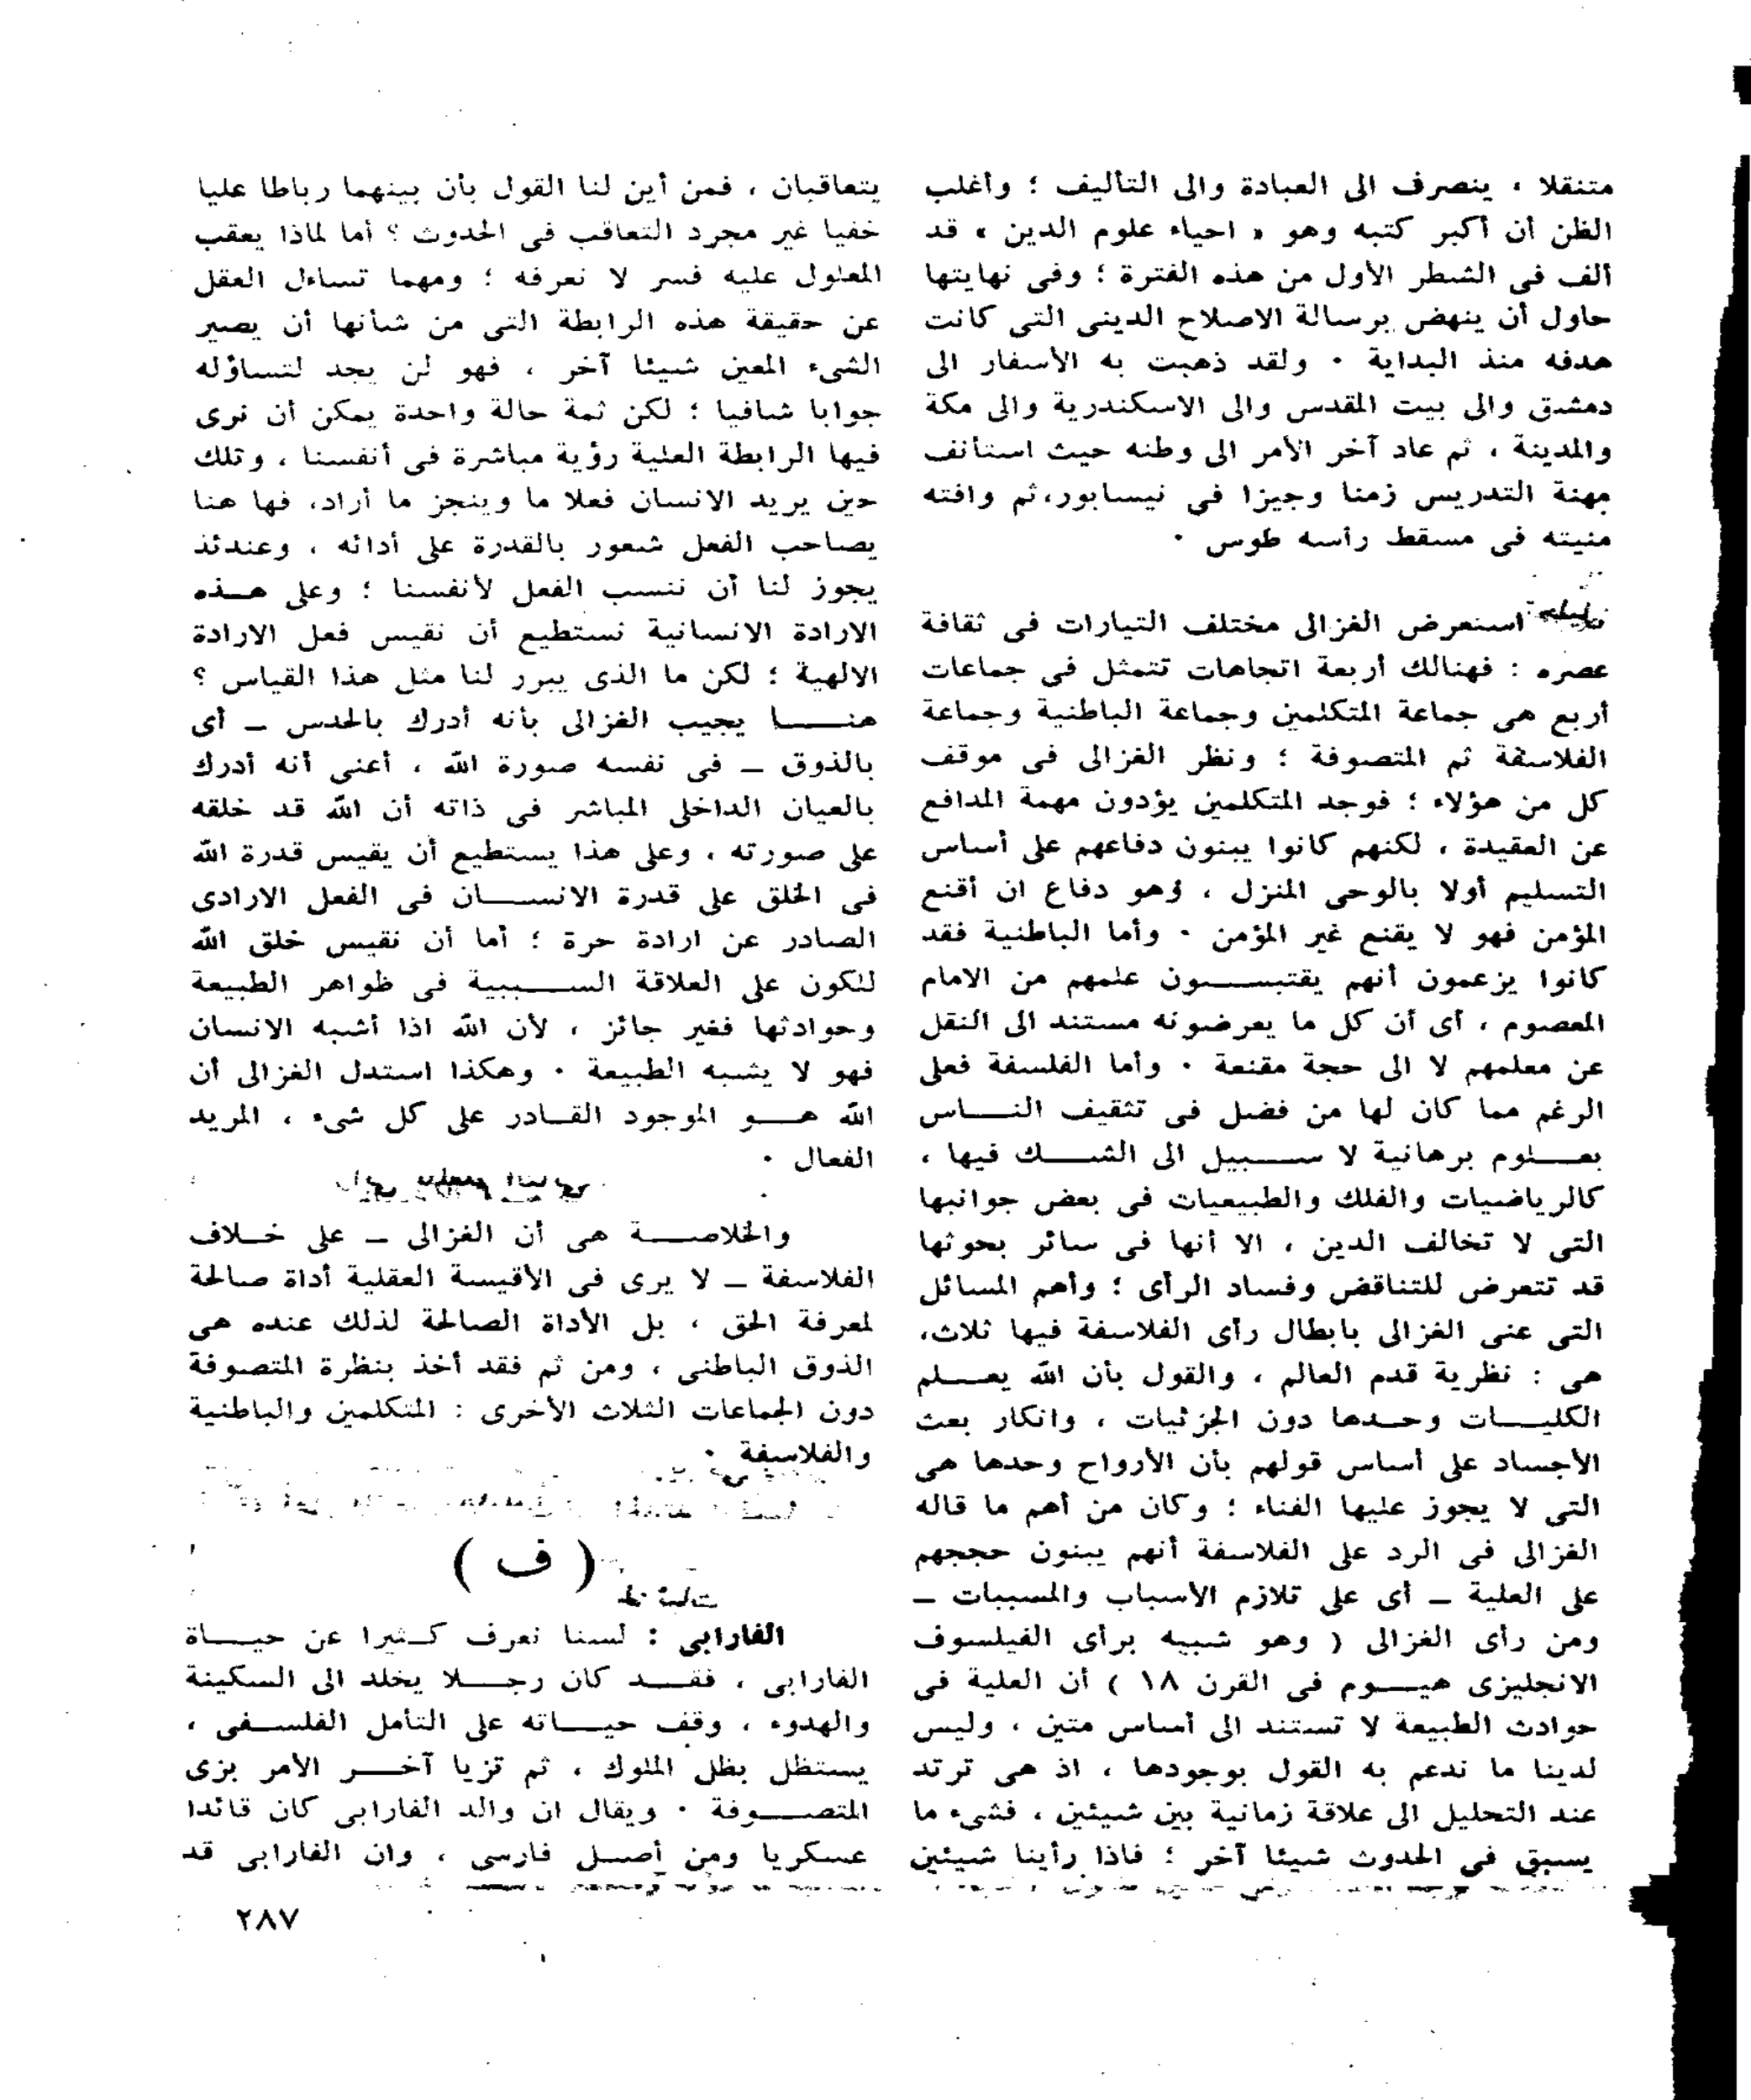 متنقلا ، ينصرف الى العبادة والى التأليف ؛ وأغلب
الظن أن أكبر كتبه وهو « احياء علوم الدين » قد
ألف فى الشطر الأول من هذه الفترة ؛ وفى نهايتها
حاول أن ينهض برسالة الاصلاح الدينى التى كانت
هدفه منذ البداية ٠ ولقد ذهبت به الأسفار الى
دمشق والى بيت المقدس والى الاسكندرية والى مكة
والمدينة ، ثم عاد آخر الأمر الى وطنه حيث استأنف
مهنة التدريس زمنا وجيزا فى نيسابور، ثم وافته
منيته فى مسقط رأسه طوس ٠
استعرض الغزالى مختلف التيارات فى ثقافة
عصره : فهنالك أربعة اتجاهات تتمثل فى جماعات
أربع هى جماعة المتكلمين وجماعة الباطنية وجماعة
الفلاسفة ثم المتصوفة ؛ ونظر الغزالى فى موقف
كل من هؤلاء ؛ فوجد المتكلمين يؤدون مهمة المدافع
عن العقيدة ، لكنهم كانوا يبنون دفاعهم على أساس
التسليم أولا بالوحى المنزل ، وهو دفاع ان أقنع
المؤمن فهو لا يقنع غير المؤمن ٠ وأما الباطنية فقد
كانوا يزعمون أنهم يقتبسون علمهم من الامام
المعصوم ، أى أن كل ما يعرضونه مستند الى النقل
عن معلمهم لا الى حجة مقنعة ٠ وأما الفلسفة فعلى
الرغم مما كان لها من فضل فى تثقيف الناس
بعلوم برهانية لا سبيل الى الشك فيها ،
كالرياضيات والفلك والطبيعيات فى بعض جوانبها
التى لا تخالف الدين ، الا أنها فى سائر بحوثها
قد تتعرض للتناقض وفساد الرأى ؛ وأهم المسائل
التى عنى الغزالى بابطال رأى الفلاسفة فيها ثلاث،
هى : نظرية قدم العالم ، والقول بأن الله يعلم
الكليات وحدها دون الجزئيات ، وانكار بعث
الأجساد على أساس قولهم بأن الأرواح وحدها هى
التى لا يجوز عليها الفناء ؛ وكان من أهم ما قاله
الغزالى فى الرد على الفلاسفة أنهم يبنون حججهم
على العلية – أى على تلازم الأسباب والمسببات –
ومن رأى الغزالى ( وهو شبيه برأى الفيلسوف
الانجليزى هيوم فى القرن ١٨ ) أن العلية فى
حوادث الطبيعة لا تستند الى أساس متين ، وليس
لدينا ما ندعم به القول بوجودها ، اذ هى ترتد
عند التحليل الى علاقة زمانية بين شيئين ، فشىء ما
يسبق فى الحدوث شيئا آخر ؛ فاذا رأينا شيئين
يتعاقبان ، فمن أين لنا القول بأن بينهما رباطا عليا
خفيا غير مجرد التعاقب فى الحدوث ؟ أما لماذا يعقب
المعلول عليه فسر لا نعرفه ؛ ومهما تساءل العقل
عن حقيقة هذه الرابطة التى من شأنها أن يصير
الشىء المعين شيئا آخر ، فهو لن يجد لتساؤله
جوابا شافيا ؛ لكن ثمة حالة واحدة يمكن أن نرى
فيها الرابطة العلية رؤية مباشرة فى أنفسنا ، وتلك
حين يريد الانسان فعلا ما وينجز ما أراد، فها هنا
يصاحب الفعل شعور بالقدرة على أدائه ، وعندئذ
يجوز لنا أن ننسب الفعل لأنفسنا ؛ وعلى هذه
الارادة الانسانية نستطيع أن نقيس فعل الارادة
الالهية ؛ لكن ما الذى يبرر لنا مثل هذا القياس ؟
هنا يجيب الغزالى بأنه أدرك بالحدس – أى
بالذوق – فى نفسه صورة الله ، أعنى أنه أدرك
بالعيان الداخلى المباشر فى ذاته أن الله قد خلقه
على صورته ، وعلى هذا يستطيع أن يقيس قدرة الله
فى الخلق على قدرة الانسان فى الفعل الارادى
الصادر عن ارادة حرة ؛ أما أن نقيس خلق الله
للكون على العلاقة السببية فى ظواهر الطبيعة
وحوادثها فغير جائز ، لأن الله اذا أشبه الانسان
فهو لا يشبه الطبيعة ٠ وهكذا استدل الغزالى أن
الله هو الموجود القادر على كل شىء ، المريد
الفعال ٠
والخلاصة هى أن الغزالى – على خلاف
الفلاسفة – لا يرى فى الأقيسة العقلية أداة صالحة
لمعرفة الحق ، بل الأداة الصالحة لذلك عنده هى
الذوق الباطنى ، ومن ثم فقد أخذ بنظرة المتصوفة
دون الجماعات الثلاث الأخرى : المتكلمين والباطنية
والفلاسفة ٠
( ف )
الفارابى : لسنا نعرف كثيرا عن حياة
الفارابى ، فقد كان رجلا يخلد الى السكينة
والهدوء ، وقف حياته على التأمل الفلسفى ،
يستظل بظل الملوك ، ثم تزيا آخر الأمر بزى
المتصوفة ٠ ويقال ان والد الفارابى كان قائدا
عسكريا ومن أصل فارسى ، وان الفارابى قد
٢٨٧